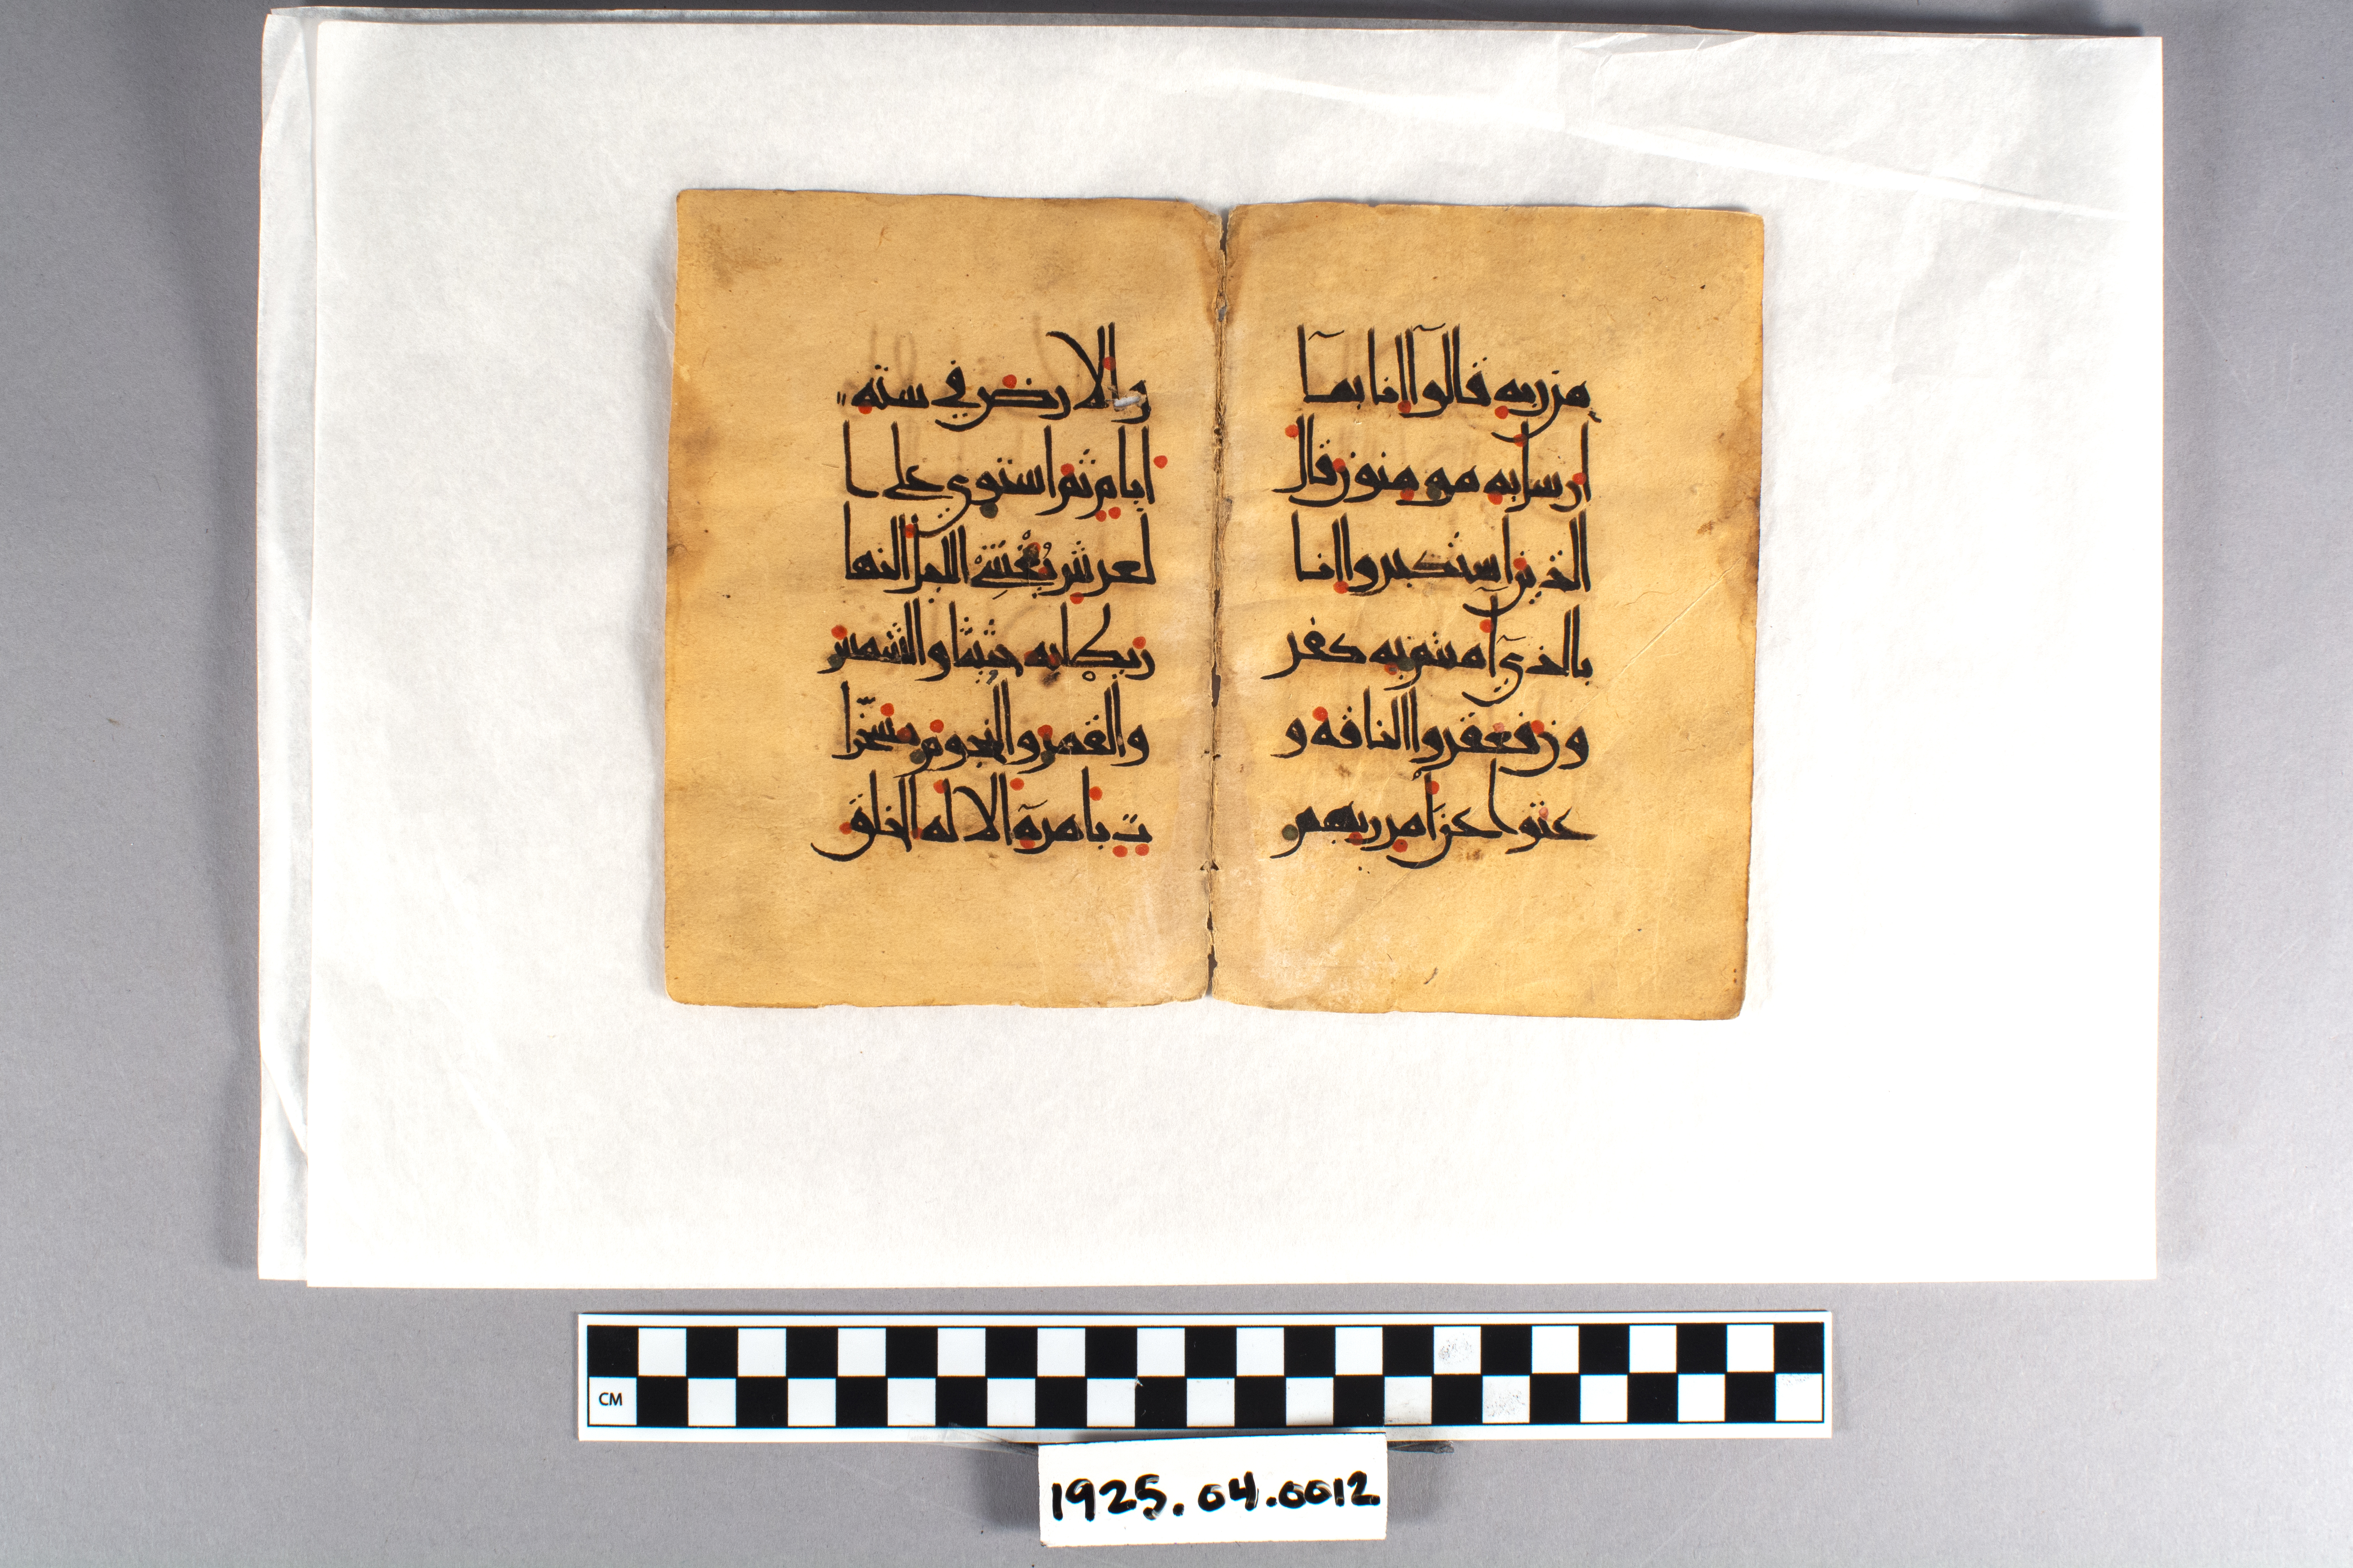 من ربه قالوآ انا بمآ
ارسل به مومنون قال
الذين استكبروا انا
بالذيٓ امنتم به كفر
ون فعقروا الناقة و
عتوا عن امر ربهم
والارض في ستة
ايام ثم استوي علي ا
لعرش يُغْشِي اليل النها
ر يطلبه حثيثا والشمس
والقمر والنجوم مسخّرا
ت بامرهٓ الا له الخلق
CM
1925.04.0012